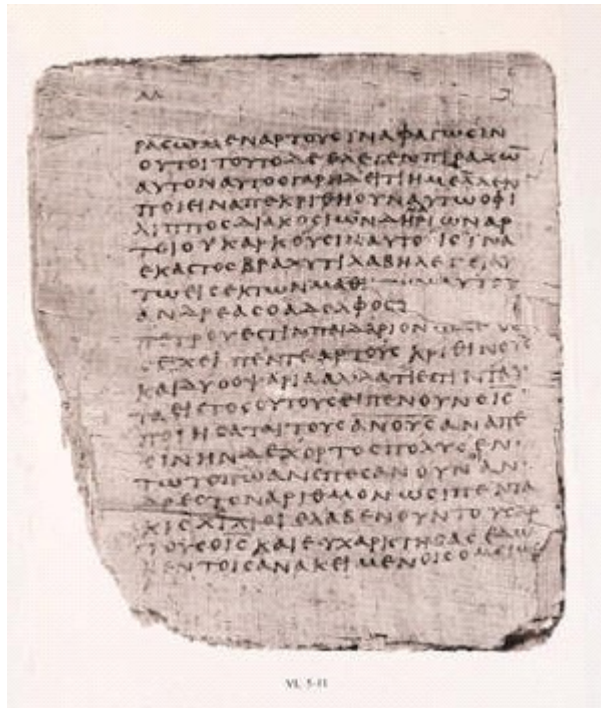 ΡΑϹΩΜΕΝΑΡΤΟΥϹΙΝΑΦΑΓΩϹΙΝ
ΟΥΤΟΙΤΟΥΤΟΔΕΕΛΕΓΕΝΠΙΡΑΖΩ
ΑΥΤΟΝΑΥΤΟϹΓΑΡΗΔΕΙΤΙΗΜΕΛΛΕΝ
ΠΟΙΕΙΝΑΠΕΚΡΙΘΗΟΥΝΑΥΤΩΟΦΙ
ΛΙΠΠΟϹΔΙΑΚΟϹΙΩΝΔΗΡΙΩΝΑΡ
ΤΟΙΟΥΚΑΡΚΟΥϹΙΝΑΥΤΟΙϹΙΝΑ
ΕΚΑϹΤΟϹΒΡΑΧΥΤΙΛΑΒΗΛΕΓΕΙΑΥ
ΤΩΕΙϹΕΚΤΩΝΜΑΘ ΑΥΤΟΥ
ΑΝΔΡΕΑϹΟΑΔΕΛΦΟϹ
ΠΕΤΡΟΥΕϹΤΙΝΠΑΙΔΑΡΙΟΝΩΔΕ
ΕΧΕΙΠΕΝΤΕΑΡΤΟΥϹΚΡΙΘΙΝΟΥϹ
ΚΑΙΔΥΟΟΨΑΡΙΑΑΛΛΑΤΙΕϹΤΙΝΤΑΥ
ΤΑΕΙϹΤΟϹΟΥΤΟΥϹΕΙΠΕΝΟΥΝΟΙϹ
ΠΟΙΗϹΑΤΑΙΤΟΥϹΑΝΟΥϹΑΝΑΠΕ
ϹΙΝΗΝΔΕΧΟΡΤΟϹΠΟΛΥϹΕΝ
ΤΩΤΟΠΩΑΝΕΠΕϹΑΝΟΥΝΑΝ
ΔΡΕϹΤΟΝΑΡΙΘΜΟΝΩϹΙΠΕΝΤΑ
ΚΙϹΧΙΛΙΟΙΕΛΑΒΕΝΟΥΝΤΟΥϹΑΡ
ΤΟΥϹΟΙϹΚΑΙΕΥΧΑΡΙϹΤΗϹΑϹΕΔΩ
ΚΕΝΤΟΙϹΑΝΑΚΕΙΜΕΝΟΙϹΟΜΟΙΩ
VI, 5-11